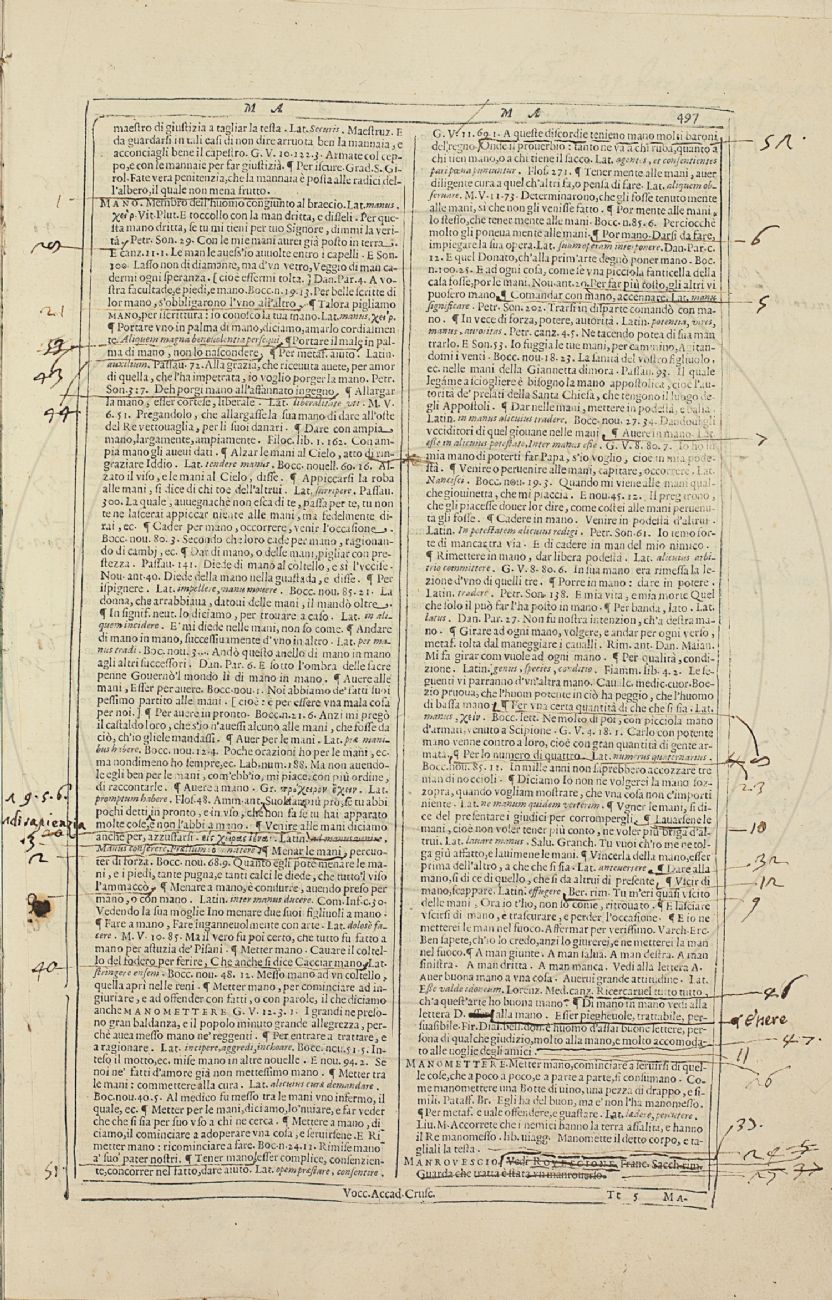 M A
M A
497
maestro di giustizia a tagliar la testa. Lat. Securis. Maestruz. E
da guardarsi in tali casi di non dire arruota ben la mannaia, e
acconciagli bene il capestro. G. V. 10. 122. 3. Armate col cep-
po, e con le mannaie per far giustizia. ¶ Per iscure. Grad. S. Gi-
rol. Fate vera penitenzia, che la mannaia è posta alle radici del-
l'albero, il quale non mena frutto.
MANO. Membro dell'huomo congiunto al braccio. Lat. manus.
Vit. Plut. E toccollo con la man dritta, e disseli. Per que-
sta mano dritta, se tu mi tieni per tuo Signore, dimmi la veri-
tà. Petr. Son. 29. Con le mie mani aurei già posto in terra.
E canz. 11. 1. Le man le auess'io auuolte entro i capelli. E Son.
100. Lasso non di diamante, ma d'vn vetro, Veggio di man ca-
dermi ogni speranza. [cioè essermi tolta.] Dan. Par. 4. A vo-
stra facultade, e piedi, e mano. Bocc. n. 19. 13. Per belle scritte di
lor mano, s'obbligarono l'vno all'altro. ¶ Talora pigliamo
MANO, per iscrittura: io conosco la tua mano. Lat. manus,
¶ Portare vno in palma di mano, diciamo, amarlo cordialmen
te. Aliquem magna beneuolentia persequi. ¶ Portare il male in pal-
ma di mano, non lo nascondere. ¶ Per metaf. aiuto. Latin.
auxilium. Passau. 72. Alla grazia, che riceuuta auete, per amor
di quella, che l'ha impetrata, io voglio porger la mano. Petr.
Son. 317. Deh porgi mano all'affannato ingegno. ¶ Allargar
la mano, esser cortese, liberale. Lat. liberalitate vti. M. V.
6. 51. Pregandolo, che allargasse la sua mano di dare all'oste
del Re vettouaglia, per li suoi danari. ¶ Dare con ampia
mano, largamente, ampiamente. Filoc. lib. 1. 162. Con am-
pia mano gli aueui dati. ¶ Alzar le mani al Cielo, atto di rin-
graziare Iddio. Lat. tendere manus. Bocc. nouell. 60. 16. Al-
zato il viso, e le mani al Cielo, disse. ¶ Appiccarsi la roba
alle mani, si dice di chi toe dell'altrui. Lat. surripere. Passau.
300. La quale, auuegnachè non esca di te, passa per te, tu non
te ne lascerai appiccar niente alle mani, ma fedelmente di-
rai, ec. ¶ Cader per mano, occorrere, venir l'occasione.
Bocc. nou. 80. 3. Secondo che loro cade per mano, ragionan-
do di cambj, ec. ¶ Dar di mano, o delle mani, pigliar con pre-
stezza. Passau. 141. Diede di mano al coltello, e si l'vccise.
Nou. ant. 40. Diede della mano nella guastada, e disse. ¶ Per
ispignere. Lat. impellere, manu mouere. Bocc. nou. 85. 21. La
donna, che arrabbiaua, datoui delle mani, il mandò oltre.
¶ In signif. neut. lo diciamo, per trouare a caso. Lat. in ali-
quem incidere. E' mi diede nelle mani, non so come. ¶ Andare
di mano in mano, successiuamente d'vno in altro. Lat. per ma-
nus tradi. Bocc. nou. 3. Andò questo anello di mano in mano
agli altri successori. Dan. Par. 6. E sotto l'ombra delle sacre
penne Gouernò'l mondo lì di mano in mano. ¶ Auere alle
mani, Esser per auere. Bocc. nou. 1. Noi abbiamo de' fatti suoi
pessimo partito alle mani. [cioè: e per essere vna mala cosa
per noi.] ¶ Per auere in pronto. Bocc. n. 21. 6. Anzi mi pregò
il castaldo loro, che s'io n'auessi alcuno alle mani, che fosse da
ciò, ch'io gliele mandassi. ¶ Auer per le mani. Lat. præ mani-
bus habere. Bocc. nou. 12. 4. Poche orazioni ho per le mani, ec.
ma nondimeno ho sempre, ec. Lab. num. 188. Ma non auendo-
le egli ben per le mani, com'ebb'io, mi piace, con più ordine,
di raccontarle. ¶ Auere a mano. Gr.
promptum habere. Filos. 48. Amm. ant. Suol far più prò, se tu abbi
pochi detti in pronto, e in vso, che non fa se tu hai apparato
molte cose, e non l'abbi a mano. ¶ Venire alle mani diciamo
anche per, azzuffarsi. Latin.
Manus conserere.
¶ Menar le mani, percuo-
ter di forza. Bocc. nou. 68. 9. Quanto egli potè menare le ma-
ni, e i piedi, tante pugna, e tanti calci le diede, che tutto'l viso
l'ammaccò. ¶ Menare a mano, è condurre, auendo preso per
mano, o con mano. Latin. inter manus ducere. Com. Inf. c. 30.
Vedendo la sua moglie Ino menare due suoi figliuoli a mano.
¶ Fare a mano, Fare inganneuolmente con arte. Lat. dolosè fa-
cere. M. V. 10. 85. Ma il vero fu poi certo, che tutto fu fatto a
mano per astuzia de' Pisani. ¶ Metter mano. Cauare il coltel-
lo del fodero per ferire, Che anche si dice Cacciar mano. Lat.
stringere ensem. Bocc. nou. 48. 12. Messo mano ad vn coltello,
quella aprì nelle reni. ¶ Metter mano, per cominciare ad in-
giuriare, e ad offender con fatti, o con parole, il che diciamo
anche MANOMETTERE. G. V. 12. 3. 1. I grandi ne preso-
no gran baldanza, e il popolo minuto grande allegrezza, per-
chè auea messo mano ne' reggenti. ¶ Per entrare a trattare, e
a ragionare. Lat. incipere, aggredi, inchoare. Bocc. nou. 51. 5. In-
teso il motto, ec. mise mano in altre nouelle. E nou. 94. 2. Se
noi ne' fatti d'amore già non mettessimo mano. ¶ Metter tra
le mani: commettere alla cura. Lat. alicuius curæ demandare.
Boc. nou. 40. 5. Al medico fu messo tra le mani vno infermo, il
quale, ec. ¶ Metter per le mani, diciamo, lo'nuiare, e far veder
che che si sia per suo vso a chi ne cerca. ¶ Mettere a mano, di
ciamo, il cominciare a adoperare vna cosa, e seruirsene. E Ri
metter mano: ricominciare a fare. Boc. n. 24. 11. Rimise mano
a' suo' pater nostri. ¶ Tener mano, esser complice, consenzien-
te, concorrer nel fatto, dare aiuto. Lat. opem præstare, consentire.
G. V. 11. 69. 1. A queste discordie tenieno mano molti baroni
del regno. Onde il prouerbio: tanto ne va a chi ruba, quanto a
chi tien mano, o a chi tiene il sacco. Lat. agentes, et consentientes
pari pœna puniuntur. Filos. 271. ¶ Tener mente alle mani, auer
diligente cura a quel ch'altri fa, o pensa di fare. Lat. aliquem ob-
seruare. M. V. 11. 73. Determinarono, che gli fosse tenuto mente
alle mani, si che non gli venisse fatto. ¶ Por mente alle mani,
lo stesso, che tener mente alle mani. Bocc. n. 85. 6. Perciocchè
molto gli poneua mente alle mani. ¶ Por mano. Darsi da fare,
impiegare la sua opera. Lat. suam operam interponere. Dan. Par. c.
12. E quel Donato, ch'alla prim'arte degnò poner mano. Boc.
n. 100. 25. E ad ogni cosa, come se vna piccola fanticella della
casa fosse, por le mani. Nou. ant. 20. Per far più tosto, gli altri vi
puosero mano. ¶ Comandar con mano, accennare. Lat. manu
significare. Petr. Son. 202. Trarsi in disparte comandò con ma-
no. ¶ In vece di forza, potere, autorità. Latin. potentia, vires,
manus, auctoritas. Petr. canz. 4. 5. Ne tacendo potea di sua man
trarlo. E Son. 53. Io fuggia le tue mani, per cammino, Agitan-
domi i venti. Bocc. nou. 18. 23. La sanità del vostro figliuolo.
ec. nelle mani della Giannetta dimora. Passau. 93. Il quale
legame a isciogliere è bisogno la mano appostolica, cioè l'au-
torità de' prelati della Santa Chiesa, che tengono il luogo de-
gli Appostoli. ¶ Dar nelle mani, mettere in podestà, e balìa.
Latin. in manus alicuius tradere. Bocc. nou. 27. 34. Dandoui gli
vcciditori di quel giouane nelle mani. ¶ Auere in mano. Lat.
esse in alicuius potestate, inter manus esse. G. V. 8. 80. 7. Io ho in
mia mano di poterti far Papa, s'io voglio, cioè in mia pode-
stà. ¶ Venire o peruenire alle mani, capitare, occorrere. Lat.
Nancisci. Bocc. nou. 19. 3. Quando mi viene alle mani qual-
che giouinetta, che mi piaccia. E nou. 45. 12. Il pregarono,
che gli piacesse douer lor dire, come costei alle mani peruenu-
ta gli fosse. ¶ Cadere in mano. Venire in podestà d'altrui.
Latin. In potestatem alicuius redigi. Petr. Son. 61. Io temo for-
te di mancar tra via. E di cadere in man del mio nimico.
¶ Rimettere in mano, dar libera podestà. Lat. alicuius arbi-
trio committere. G. V. 8. 80. 6. In sua mano era rimessa la le-
zione d'vno di quelli tre. ¶ Porre in mano: dare in potere.
Latin. tradere. Petr. Son. 138. E mia vita, e mia morte Quel
che solo il può far l'ha posto in mano. ¶ Per banda, lato. Lat.
latus. Dan. Par. 27. Non fu nostra intenzion, ch'a destra ma-
no. ¶ Girare ad ogni mano, volgere, e andar per ogni verso,
metaf. tolta dal maneggiare i caualli. Rim. ant. Dan. Maian.
Mi fa girar com vuole ad ogni mano. ¶ Per qualità, condi-
zione. Latin. genus, species, conditio. Fiamm. lib. 4. 2. Le se-
guenti vi parranno d'vn'altra mano. Caualc. medic. cuor. Boe-
zio pruoua, che l'huom potente in ciò ha peggio, che l'huomo
di bassa mano. ¶ Per vna certa quantità di che che si sia. Lat.
manus. Bocc. lett. Ne molto di poi, con picciola mano
d'armati, venuto a Scipione. G. V. 4. 18. 1. Carlo con potente
mano venne contro a loro, cioè con gran quantità di gente ar-
mata. ¶ Per lo numero di quattro. Lat. numerus quaternarius.
Bocc. nou. 85. 11. In mille anni non saprebbero accozzare tre
man di noccioli. ¶ Diciamo Io non ne volgerei la mano soz-
zopra, quando vogliam mostrare, che vna cosa non c'importi
niente. Lat. ne manum quidem verterim. ¶ Vgner le mani, si di-
ce del presentare i giudici per corrompergli. ¶ Lauarsene le
mani, cioè non voler tener più conto, ne voler più briga d'al-
trui. Lat. lauare manus. Salu. Granch. Tu vuoi ch'io me ne tol-
ga giù affatto, e lauimene le mani. ¶ Vincerla della mano, esser
prima dell'altro, a che che si sia. Lat. anteuertere. ¶ Dare alla
mano, si dì ce di quello, che si da altrui di presente. ¶ Vscir di
mano, scappare. Latin. effugere. Ber. rim. Tu m'eri quasi vscito
delle mani, Ora io t'ho, non so come, ritrouato. ¶ E lasciare
vscirsi di mano, è trascurare, e perder l'occasione. ¶ E io ne
metterei le man nel fuoco. Affermar per verissimo. Varch. Erc.
Ben sapete, ch'io lo credo, anzi lo giurerei, e ne metterei la man
nel fuoco. ¶ A man giunte. A man salua. A man destra. A man
sinistra. A man dritta. A man manca. Vedi alla lettera A.
Auer buona mano a vna cosa. Auerui grande attitudine. Lat.
Esse valde idoneum. Lorenz. Med. canz. Ricercaruel tutto tutto,
ch'a quest'arte ho buona mano. ¶ Di mano in mano vedi alla
lettera D. alla mano. Esser pieghevole, trattabile, per-
suasibile. Fir. Dial. bell. don. è huomo d'assai buone lettere, per-
sona di qualche giudizio, molto alla mano, e molto accomoda-
to alle uoglie degli amici.
MANOMETTERE. Metter mano, cominciare a seruirsi di quel-
le cose, che a poco a poco, e a parte a parte, si consumano. Co-
me manomettere una Botte di uino, una pezza di drappo, e si-
mili. Pataff. Br. Egli ha del buon, ma e' non l'ha manomesso.
¶ Per metaf. e uale offendere, e guastare. Lat. lædere, percutere.
Liu. M. Accorrete che i nemici hanno la terra assalita, e hanno
il Re manomesso. lib. uiagg. Manomette il detto corpo, e ta-
gliali la testa.
MANROVESCIO. Vedi ROVESCIONE. Franc. Sacch. rim.
Guarda che tratta è stata vn manrouescio.
Vocc. Accad. Crusc.
Tt 5
MA-
1
21
43
44
2
40
51
52
6
5
7
23
10
32
12
9
46
Essere
47
11
26
33